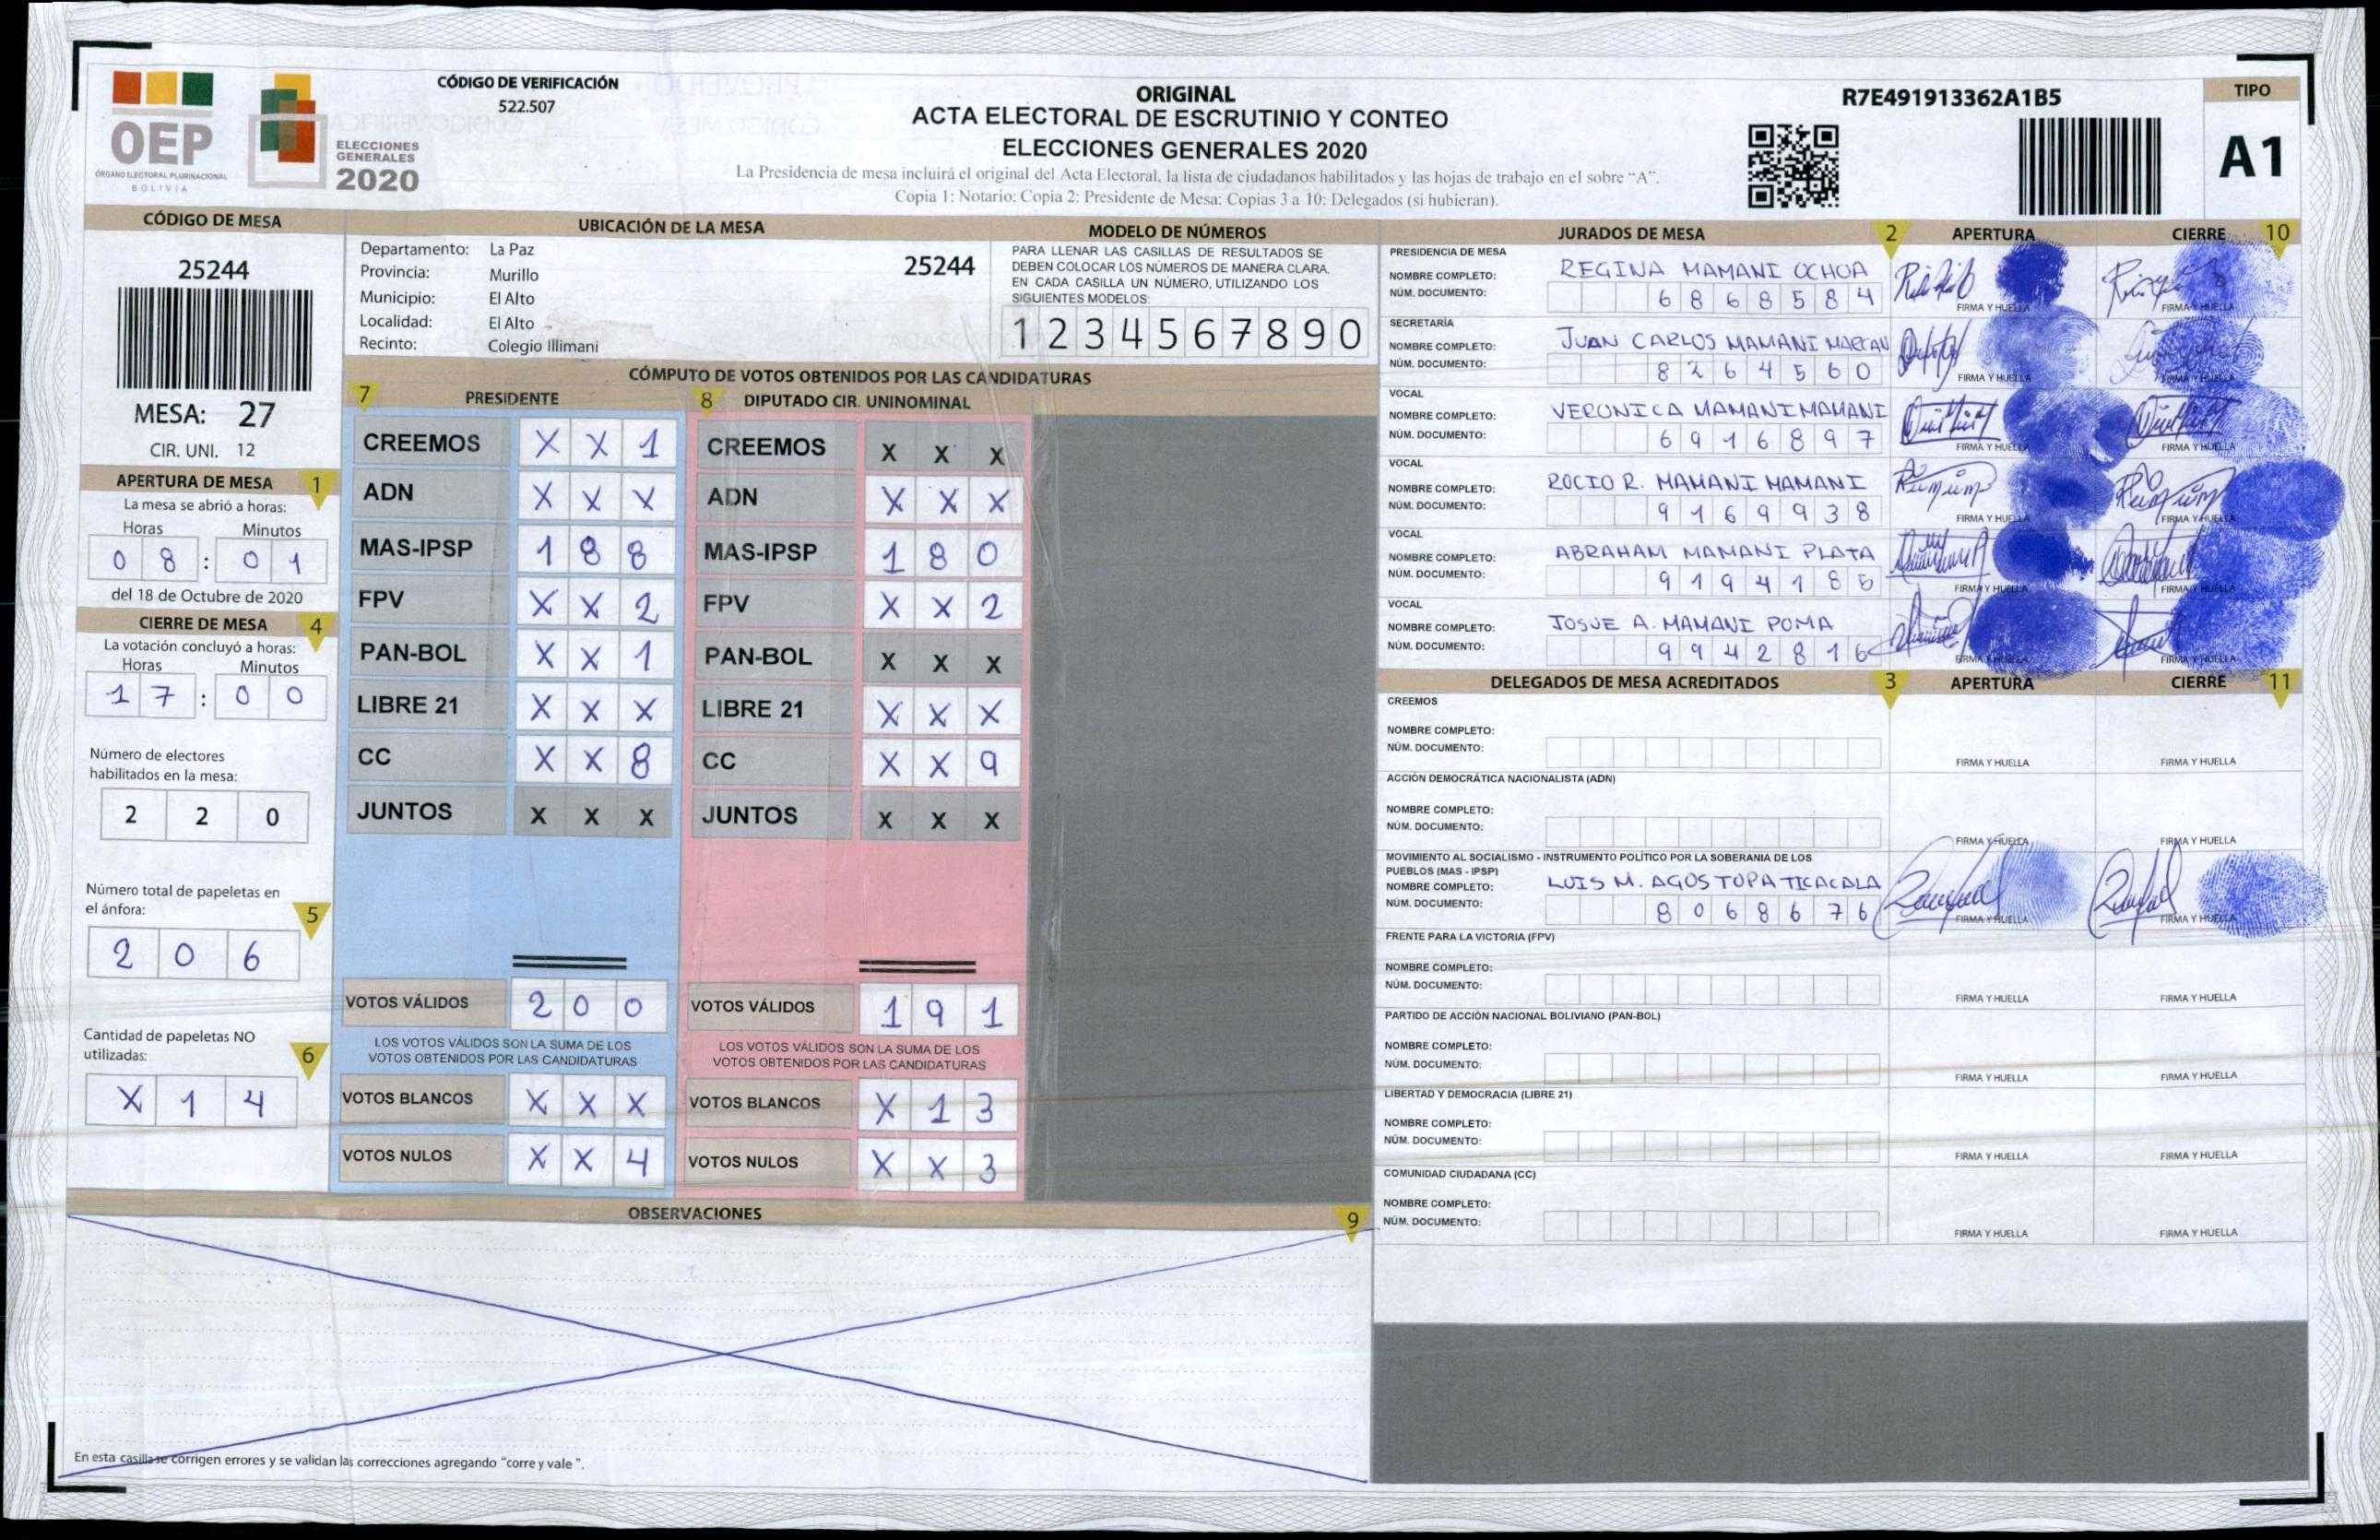 OEP
ÓRGANO ELECTORAL PLURINACIONAL
BOLIVIA
ELECCIONES
GENERALES
2020
CÓDIGO DE VERIFICACIÓN
522.507
ORIGINAL
ACTA ELECTORAL DE ESCRUTINIO Y CONTEO
ELECCIONES GENERALES 2020
La Presidencia de mesa incluirá el original del Acta Electoral, la lista de ciudadanos habilitados y las hojas de trabajo en el sobre “A”.
Copia 1: Notario; Copia 2: Presidente de Mesa; Copias 3 a 10: Delegados (si hubieran).
R7E491913362A1B5
TIPO
A1
CÓDIGO DE MESA
25244
MESA: 27
CIR. UNI. 12
APERTURA DE MESA 1
La mesa se abrió a horas:
Horas Minutos
0 8 : 0 1
del 18 de Octubre de 2020
CIERRE DE MESA 4
La votación concluyó a horas:
Horas Minutos
1 7 : 0 0
Número de electores
habilitados en la mesa:
2 2 0
Número total de papeletas en
el ánfora: 5
2 0 6
Cantidad de papeletas NO
utilizadas: 6
X 1 4
UBICACIÓN DE LA MESA
Departamento: La Paz
Provincia: Murillo
Municipio: El Alto
Localidad: El Alto
Recinto: Colegio Illimani
25244
MODELO DE NÚMEROS
PARA LLENAR LAS CASILLAS DE RESULTADOS SE
DEBEN COLOCAR LOS NÚMEROS DE MANERA CLARA.
EN CADA CASILLA UN NÚMERO, UTILIZANDO LOS
SIGUIENTES MODELOS:
1 2 3 4 5 6 7 8 9 0
CÓMPUTO DE VOTOS OBTENIDOS POR LAS CANDIDATURAS
7 PRESIDENTE
CREEMOS X X 1
ADN X X X
MAS-IPSP 1 8 8
FPV X X 2
PAN-BOL X X 1
LIBRE 21 X X X
CC X X 8
JUNTOS X X X
VOTOS VÁLIDOS 2 0 0
LOS VOTOS VÁLIDOS SON LA SUMA DE LOS
VOTOS OBTENIDOS POR LAS CANDIDATURAS
VOTOS BLANCOS X X X
VOTOS NULOS X X 4
8 DIPUTADO CIR. UNINOMINAL
CREEMOS X X X
ADN X X X
MAS-IPSP 1 8 0
FPV X X 2
PAN-BOL X X X
LIBRE 21 X X X
CC X X 9
JUNTOS X X X
VOTOS VÁLIDOS 1 9 1
LOS VOTOS VÁLIDOS SON LA SUMA DE LOS
VOTOS OBTENIDOS POR LAS CANDIDATURAS
VOTOS BLANCOS X 1 3
VOTOS NULOS X X 3
OBSERVACIONES 9
En esta casilla se corrigen errores y se validan las correcciones agregando "corre y vale ".
JURADOS DE MESA 2 APERTURA CIERRE 10
PRESIDENCIA DE MESA
NOMBRE COMPLETO: REGINA MAMANI OCHOA
NÚM. DOCUMENTO: 6 8 6 8 5 8 4
FIRMA Y HUELLA FIRMA Y HUELLA
SECRETARÍA
NOMBRE COMPLETO: JUAN CARLOS MAMANI
NÚM. DOCUMENTO: 8 2 6 4 5 6 0
FIRMA Y HUELLA FIRMA Y HUELLA
VOCAL
NOMBRE COMPLETO: VERONICA MAMANI MAMANI
NÚM. DOCUMENTO: 6 9 1 6 8 9 7
FIRMA Y HUELLA FIRMA Y HUELLA
VOCAL
NOMBRE COMPLETO: ROCIO R. MAMANI MAMANI
NÚM. DOCUMENTO: 9 1 6 9 9 3 8
FIRMA Y HUELLA FIRMA Y HUELLA
VOCAL
NOMBRE COMPLETO: ABRAHAM MAMANI PLATA
NÚM. DOCUMENTO: 9 1 9 4 1 8 5
FIRMA Y HUELLA FIRMA Y HUELLA
VOCAL
NOMBRE COMPLETO: JOSUE A. MAMANI POMA
NÚM. DOCUMENTO: 9 9 4 2 8 1 6
FIRMA Y HUELLA FIRMA Y HUELLA
DELEGADOS DE MESA ACREDITADOS 3 APERTURA CIERRE 11
CREEMOS
NOMBRE COMPLETO:
NÚM. DOCUMENTO:
FIRMA Y HUELLA FIRMA Y HUELLA
ACCIÓN DEMOCRÁTICA NACIONALISTA (ADN)
NOMBRE COMPLETO:
NÚM. DOCUMENTO:
FIRMA Y HUELLA FIRMA Y HUELLA
MOVIMIENTO AL SOCIALISMO - INSTRUMENTO POLÍTICO POR LA SOBERANIA DE LOS
PUEBLOS (MAS - IPSP)
NOMBRE COMPLETO: LUIS M. AGOSTOPA TICACALA
NÚM. DOCUMENTO: 8 0 6 8 6 7 6
FIRMA Y HUELLA FIRMA Y HUELLA
FRENTE PARA LA VICTORIA (FPV)
NOMBRE COMPLETO:
NÚM. DOCUMENTO:
FIRMA Y HUELLA FIRMA Y HUELLA
PARTIDO DE ACCIÓN NACIONAL BOLIVIANO (PAN-BOL)
NOMBRE COMPLETO:
NÚM. DOCUMENTO:
FIRMA Y HUELLA FIRMA Y HUELLA
LIBERTAD Y DEMOCRACIA (LIBRE 21)
NOMBRE COMPLETO:
NÚM. DOCUMENTO:
FIRMA Y HUELLA FIRMA Y HUELLA
COMUNIDAD CIUDADANA (CC)
NOMBRE COMPLETO:
NÚM. DOCUMENTO:
FIRMA Y HUELLA FIRMA Y HUELLA